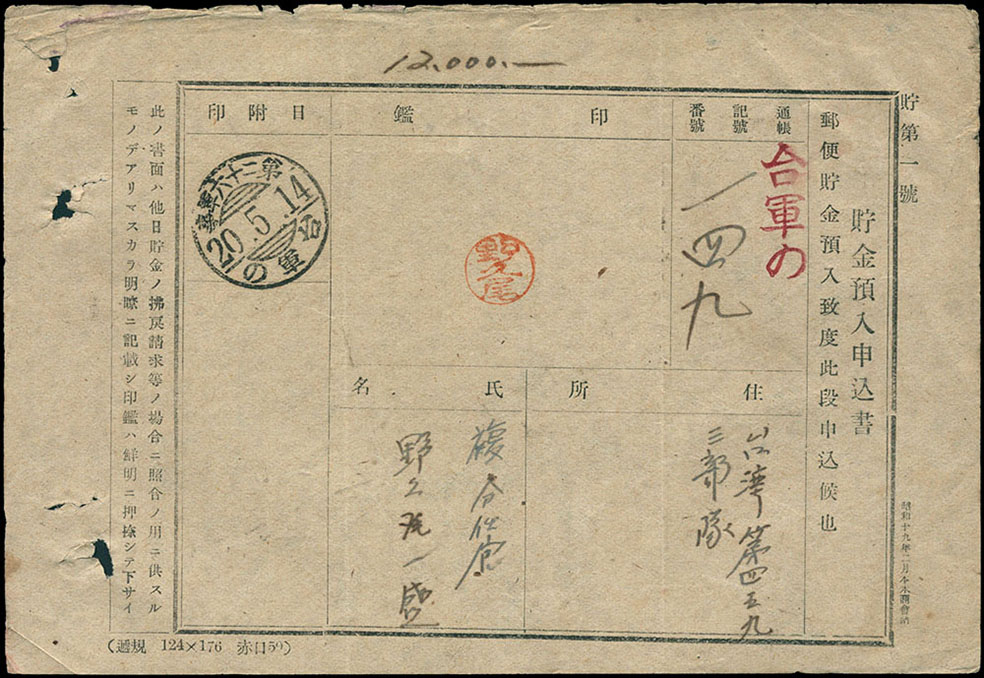 12.000.—
貯第一號
貯金預入申込書
郵便貯金預入致度此段申込候也
通帳
記號
番號
台軍の
一四九
印鑑
野久尾
日附印
第二十六野戰
20.5.14
台軍の
住所
台湾第四五九
三部隊
氏名
野久尾一盛
此ノ書面ハ他日貯金ノ拂戻請求等ノ場合ニ照合ノ用ニ供スル
モノデアリマスカラ明瞭ニ記載シ印鑑ハ鮮明ニ押捺シテ下サイ
(遞規 124×176 赤口50)